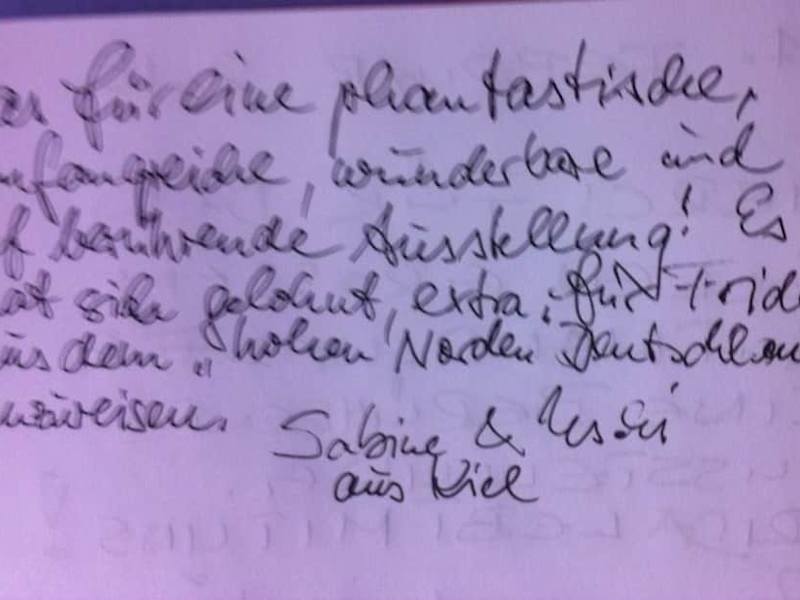 für eine phantastische,
umfangreiche, wunderbare und
berührende Ausstellung! Es
hat sich gelohnt, extra für Frida
aus dem "hohen Norden Deutschlan
anzureisen.
Sabine &
aus Kiel